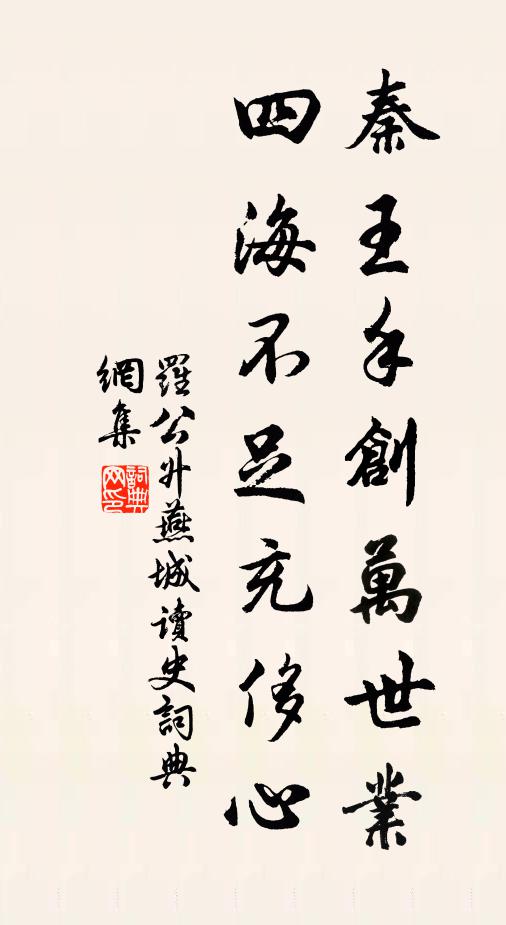 秦王手創萬世業
四海不足充侈心
羅公升燕城讀史詞典
網集
詞典網印